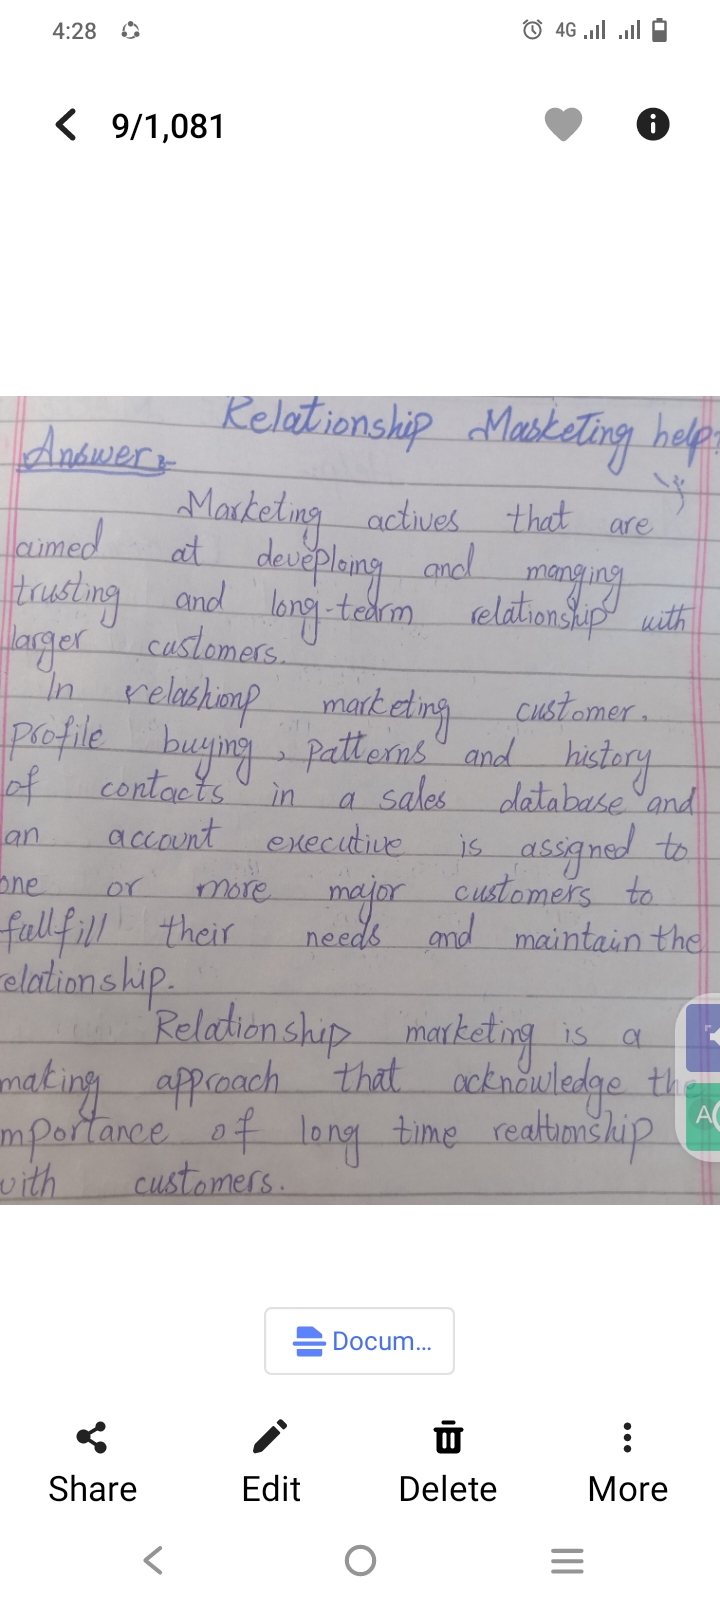 4:28
4G
9/1,081
Relationship Marketing help?
Answer:-
Marketing actives that are
aimed at deveploing and manging
trusting and long-tearm relationship with
larger customers.
In relashionp marketing customer.
profile buying, patterns and history
of contacts in a sales database and
an account executive is assigned to
one or more major customers to
fullfill their needs and maintain the
elationship.
Relationship marketing is a
making approach that acknowledge the
mportance of long time realtionship
with customers.
A
Docum...
Share Edit Delete More